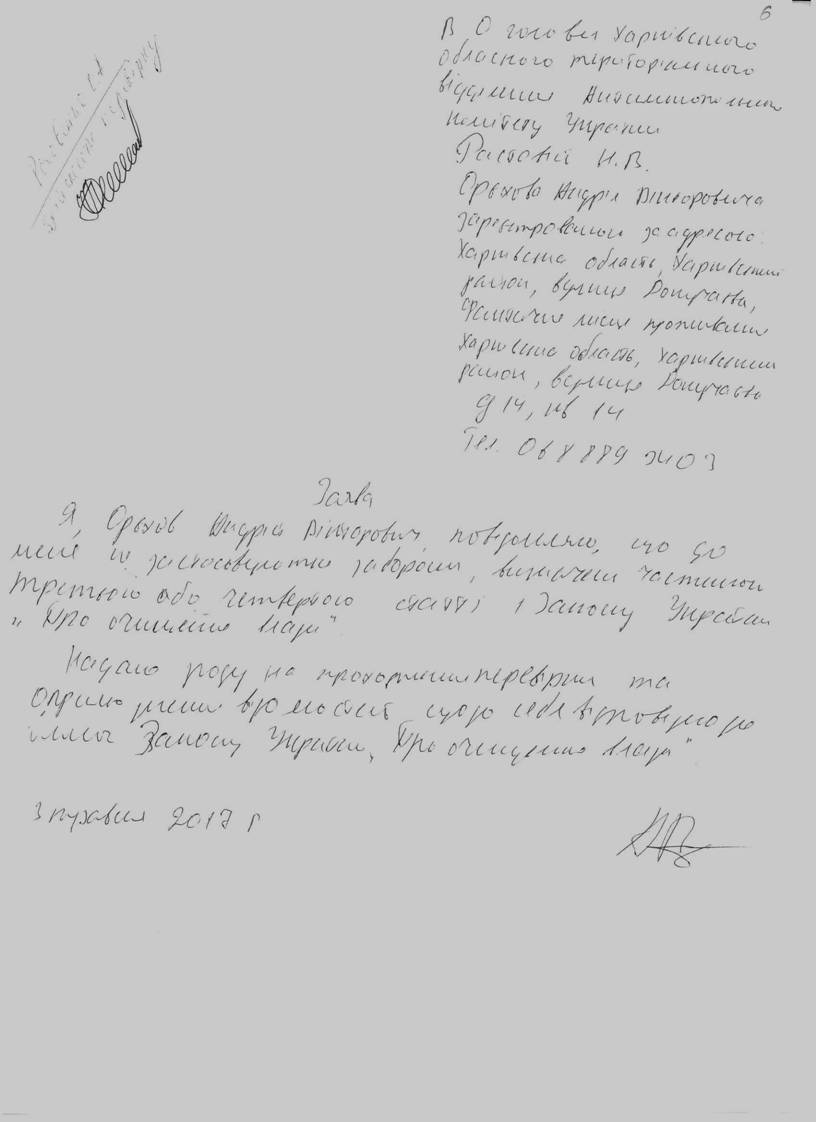 6
В О голови Харківського
обласного територіального
відділення Антимонопольного
комітету України
Растовій Н.В.
Орєхова Андрія Вікторовича
зареєстрований за адресою:
Харківська область, Харківський
район, вулиця Докучаєва,
Фактичне місце проживання
Харківська область, Харківський
район, вулиця Докучаєва
д 14, кв 14
Тел. 068 889 2403
Заява
Я, Орєхов Андрій Вікторович, повідомляю, що до
мене не застосовуються заборони, визначені частиною
третьою або четвертою статті 1 Закону України
„Про очищення влади".
Надаю згоду на проходження перевірки та
оприлюднення відомостей щодо себе відповідно до
Закону України „Про очищення влади".
3 травня 2017 г